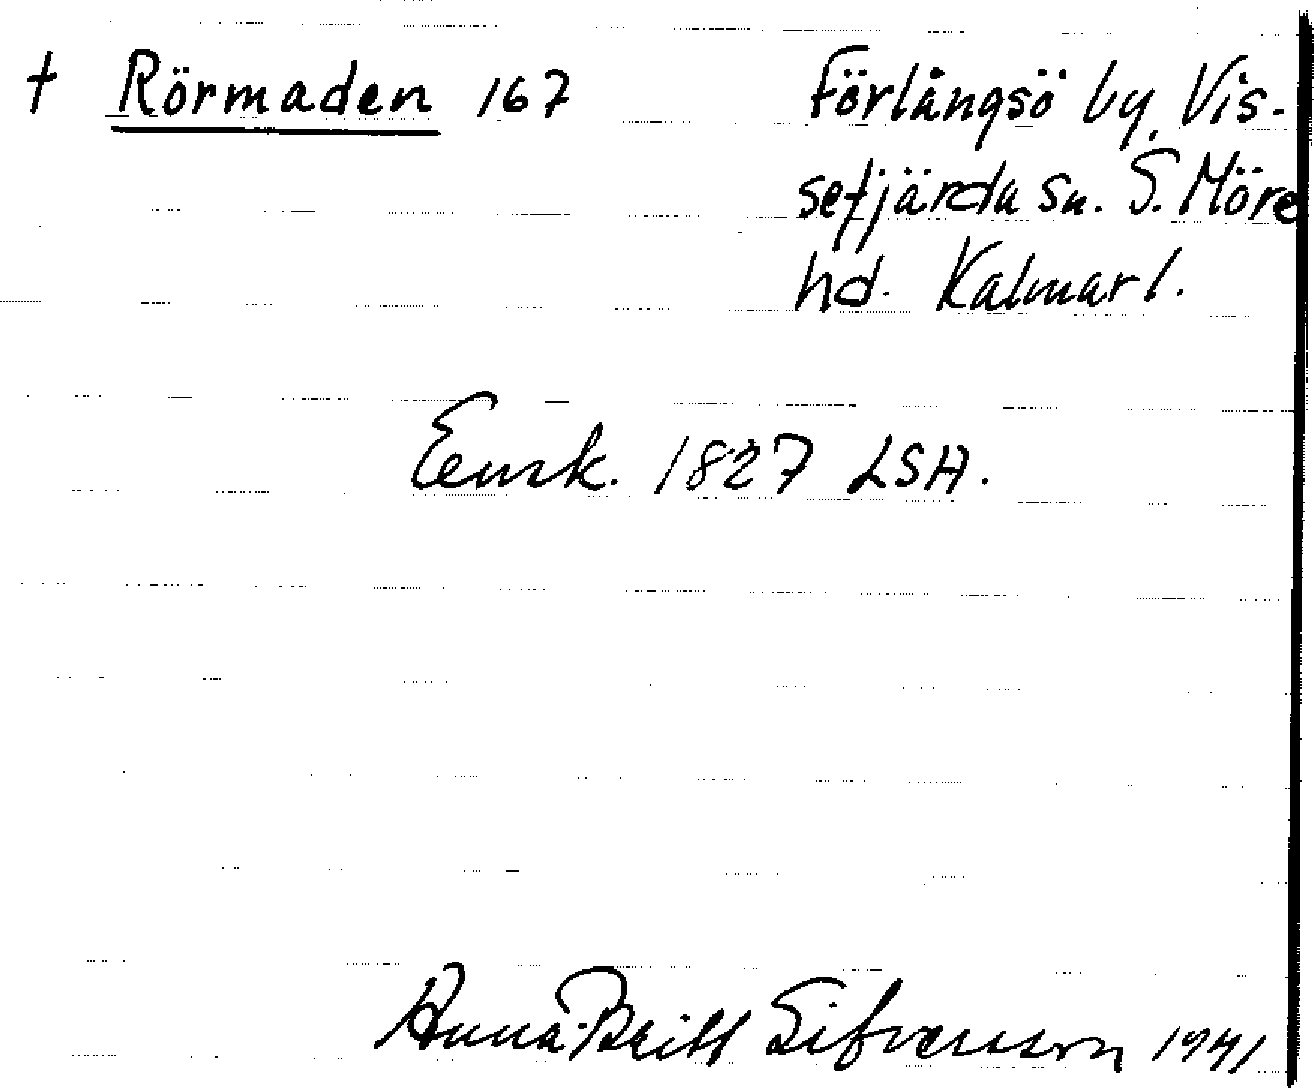 † Rörmaden 167 Förlångsö by, Vis-
sefjärda sn. S. Möre
hd. Kalmar l.
Ensk. 1827 LSA.
Anna-Britt Sifvensson 1941